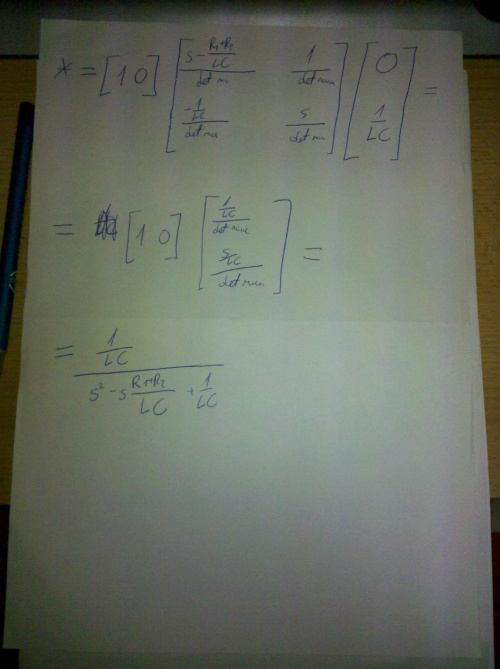 * = [1 0] [ (s - (R1+R2)/(LC))/(det m) 1/(det mac) ; (-1/(LC))/(det mac) s/(det m) ] [ 0 ; 1/(LC) ] =
= [1 0] [ (1/(LC))/(det mac) ; (s/(LC))/(det mac) ] =
= (1/(LC))/(s² - s (R1+R2)/(LC) + 1/(LC))